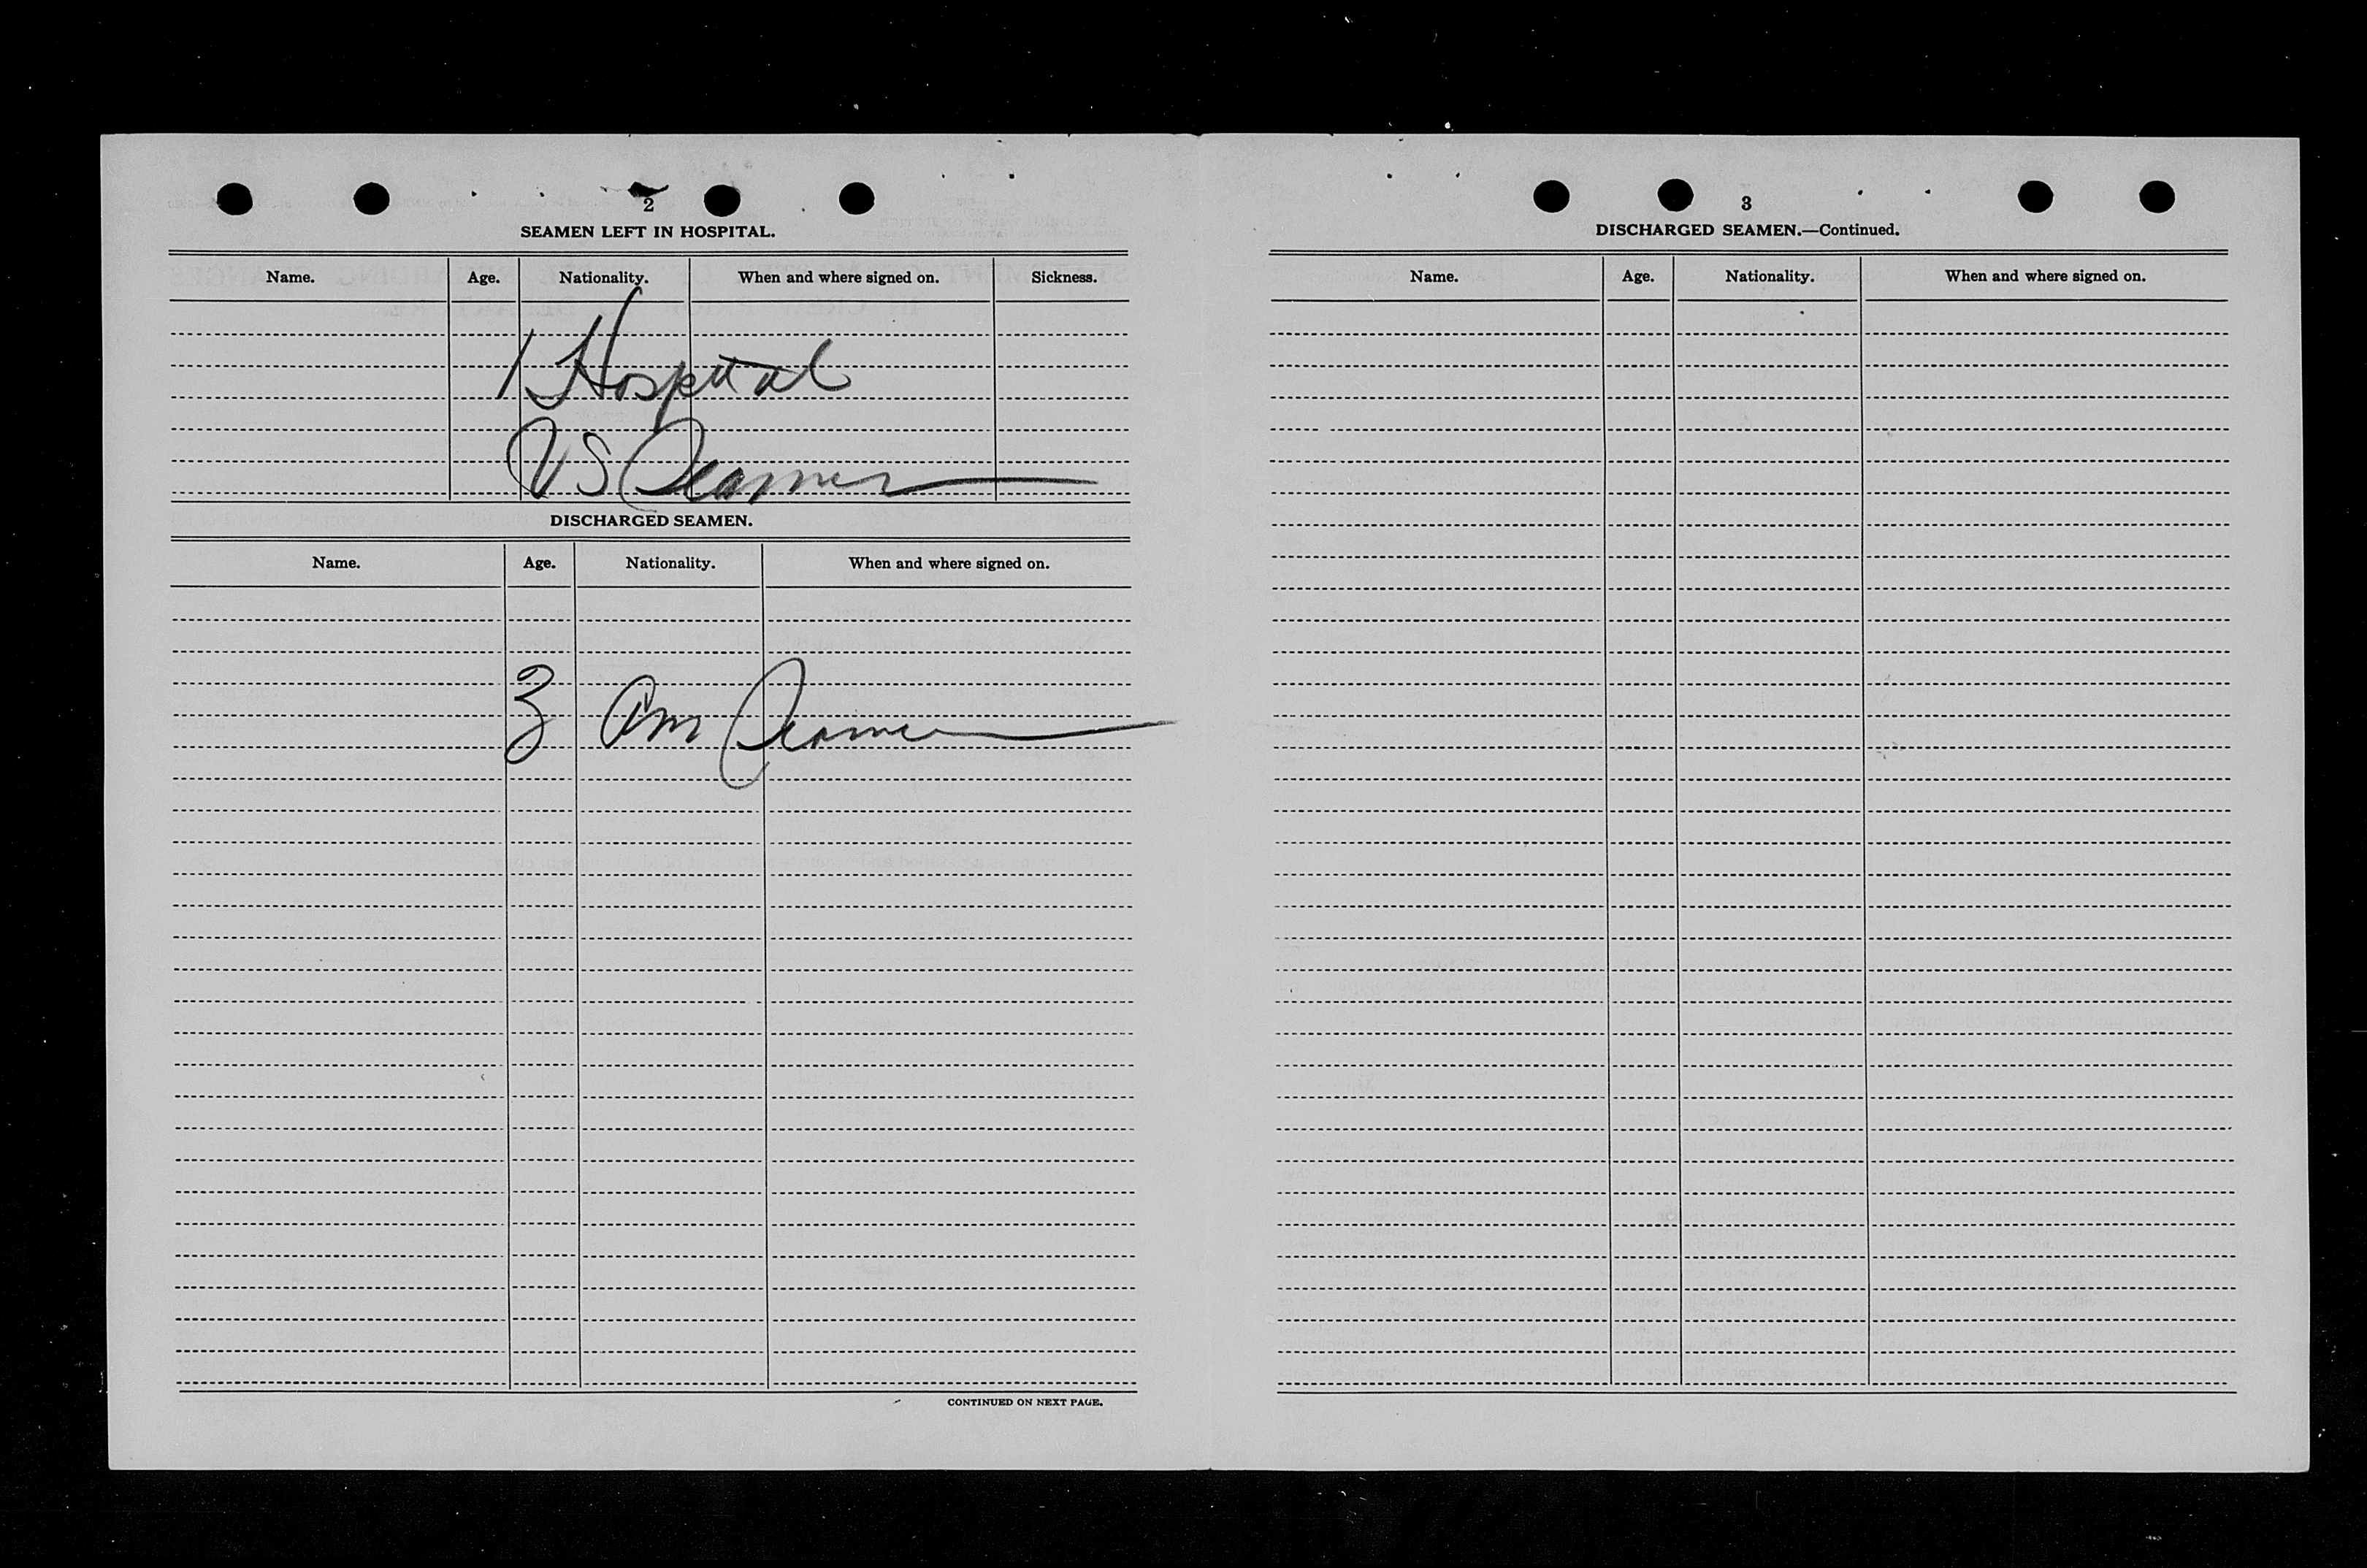 2
SEAMEN LEFT IN HOSPITAL.
Name. Age. Nationality. When and where signed on. Sickness.
1 Hospital
US Seamen
DISCHARGED SEAMEN.
Name. Age. Nationality. When and where signed on.
3 Am Seamen
CONTINUED ON NEXT PAGE.
3
DISCHARGED SEAMEN.—Continued.
Name. Age. Nationality. When and where signed on.